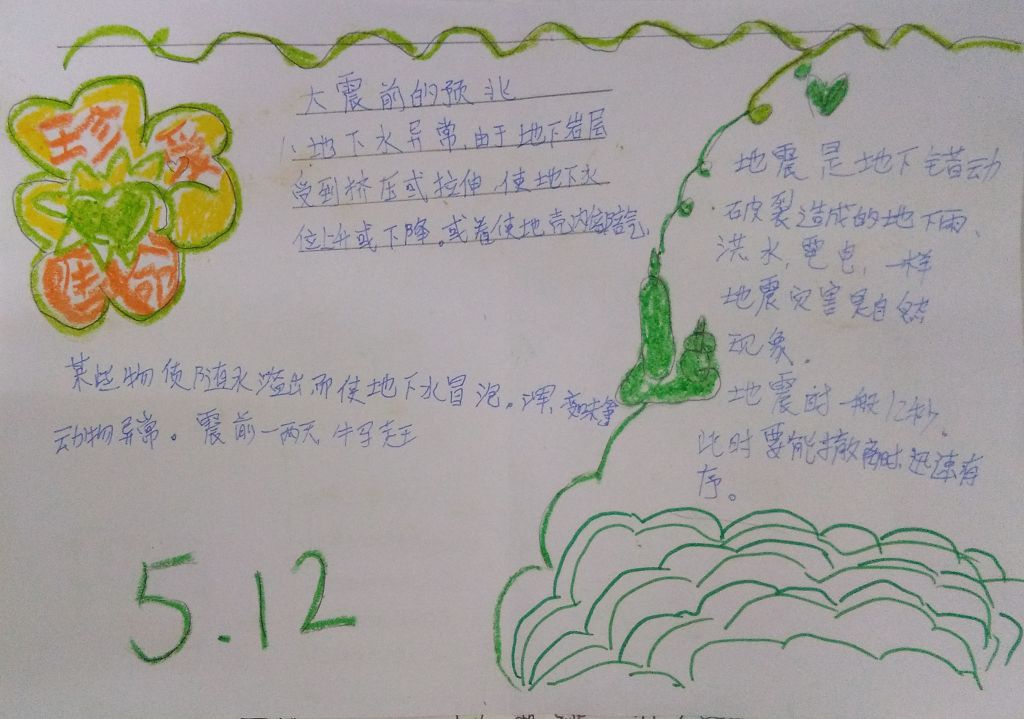 珍爱
生命
大震前的预兆
1、地下水异常,由于地下岩层
受到挤压或拉伸,使地下水
位上升或下降。或着使地壳内部气
某些物质随水溢出而使地下水冒泡。浑、变味等
动物异常。震前一两天
5.12
地震是地下错动
破裂造成的地下雨、
洪水,电,一样
地震灾害是自然
现象。
地震时一般12秒。
此时要能撤离时迅速有
序。